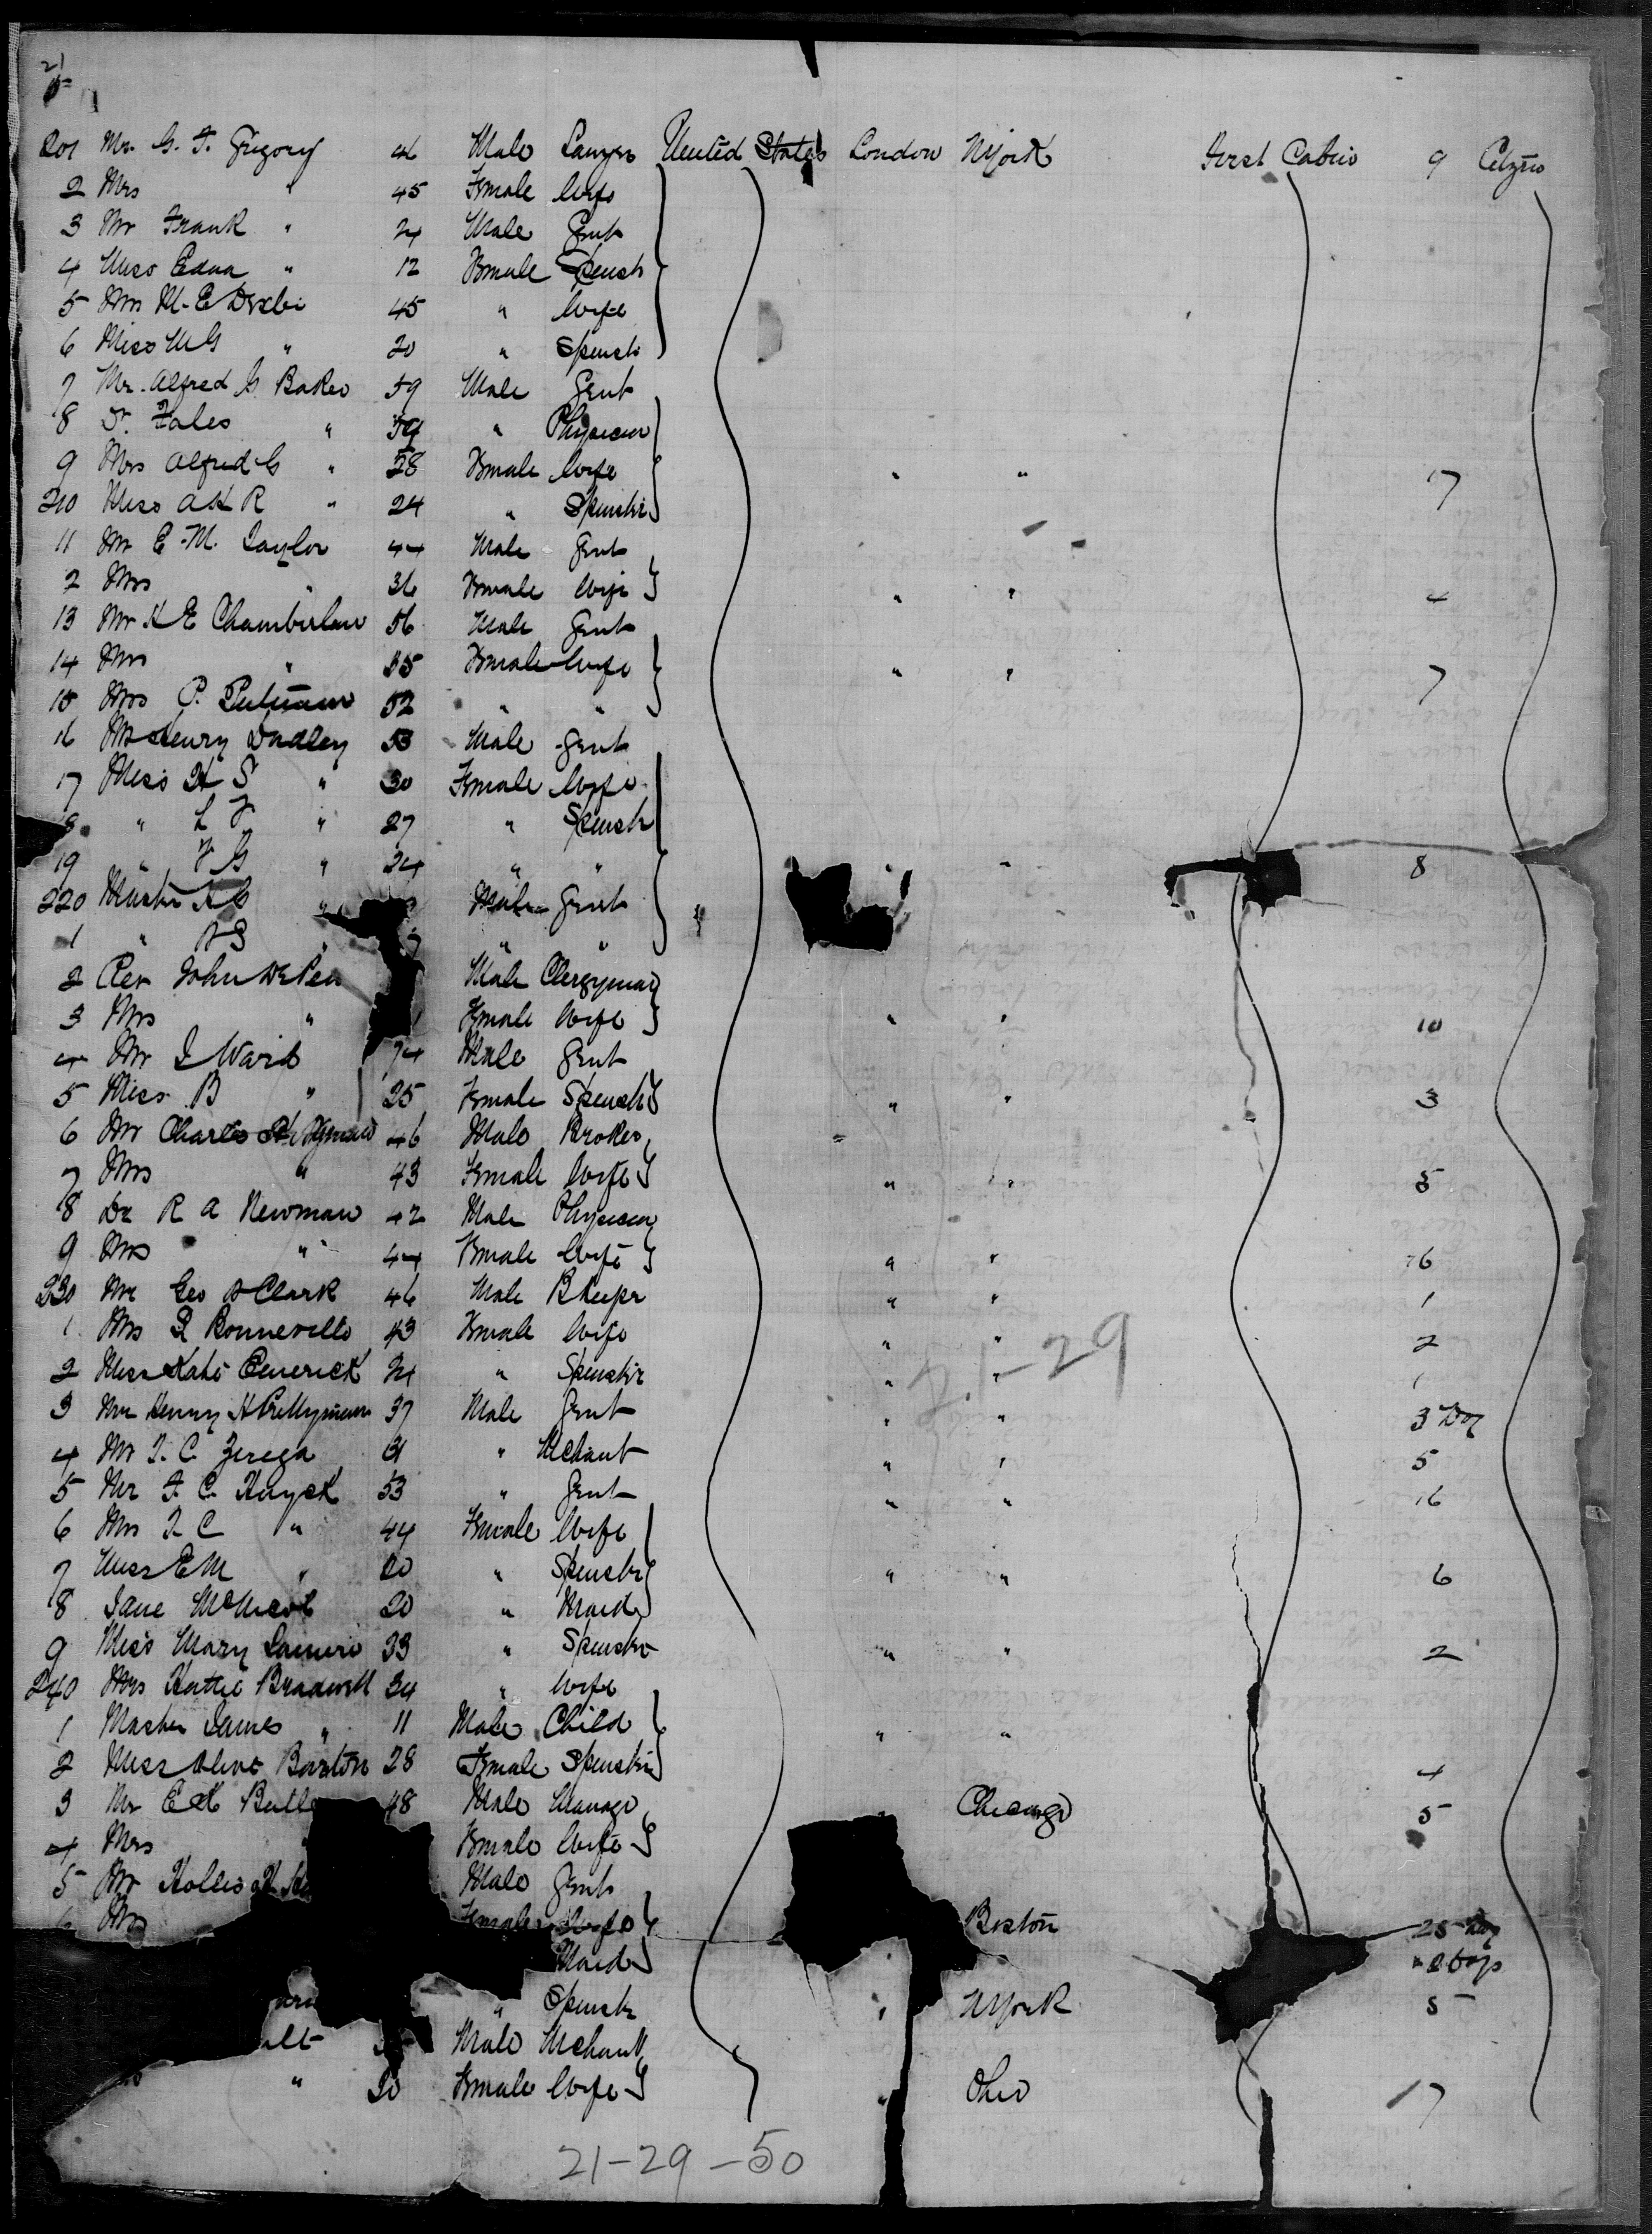 21
201 Mr. G. F. Gregory Male Lawyer United States London NYork First Cabin 9 Citzns
2 Mrs " 45 Female Wife
3 Mr Frank " 24 Male Gent
4 Miss Edna " 12 Female Spenstr
5 Mrs M. E 45 " Wife
6 Miss M G " 20 " Spenstr
7 Mr. Alfred G Baker 59 Male Gent
8 Dr. Fales " " Physician
9 Mrs Alfred G " 28 Female Wife " " 17
210 Miss A K R " 24 " Spenstr
11 Mr E. M. Taylor 44 Male Gent
2 Mrs " 36 Female Wife " " 4
13 Mr H E Chamberlain 56 Male Gent
14 Mrs " 55 Female Wife " " 7
15 Mrs P. Putnam 52 " "
16 Mr Henry Dudley 53 Male Gent
17 Miss H S " 30 Female Wife
8 " L F " 27 " Spenstr
19 " F G " 24 " " " " 8
220 Master H C " Male Gent
1 " " " "
2 Rev John Male Clergyman
3 Mrs " Female Wife " " 10
4 Mr J Ward 74 Male Gent
5 Miss B " 25 Female Spenstr " " 3
6 Mr Charles 46 Male Broker
7 Mrs " 43 Female Wife " " 5
8 Dr R A Newman 42 Male Physician
9 Mrs " 44 Female Wife " " 16
230 Mr Geo A Clark 46 Male BKeepr " " 1
1 Mrs Bonneville 43 Female Wife " " 2
2 Miss Kate Emerick 24 " Spenstr " " 1
3 Mr Henry H Prettyman 37 Male Gent " " 3 Day
4 Mr T. C. Zerega 31 " Mchant " " 5
21-29
5 Mr F. C. Huyck 53 " Gent " " 16
6 Mrs F C " 44 Female Wife
7 Miss E M " 20 " Spenstr " " 6
8 Jane McNicol 20 " Maid
9 Miss Mary 33 " Spenstr " " 2
240 Mrs Hattie Bradwell 34 " Wife
1 Master James " 11 Male Child " "
2 Miss Olive Barton 28 Female Spenstr 4
3 Mr E H 48 Male Manage Chicago 5
4 Mrs Female Wife
5 Mr Hollis H Male Gent
Mrs Female Wife Boston 25 Day
Maid
" Spenstr " NYork 5
Male Mchant
" 30 Female Wife " Ohio 17
21-29-50